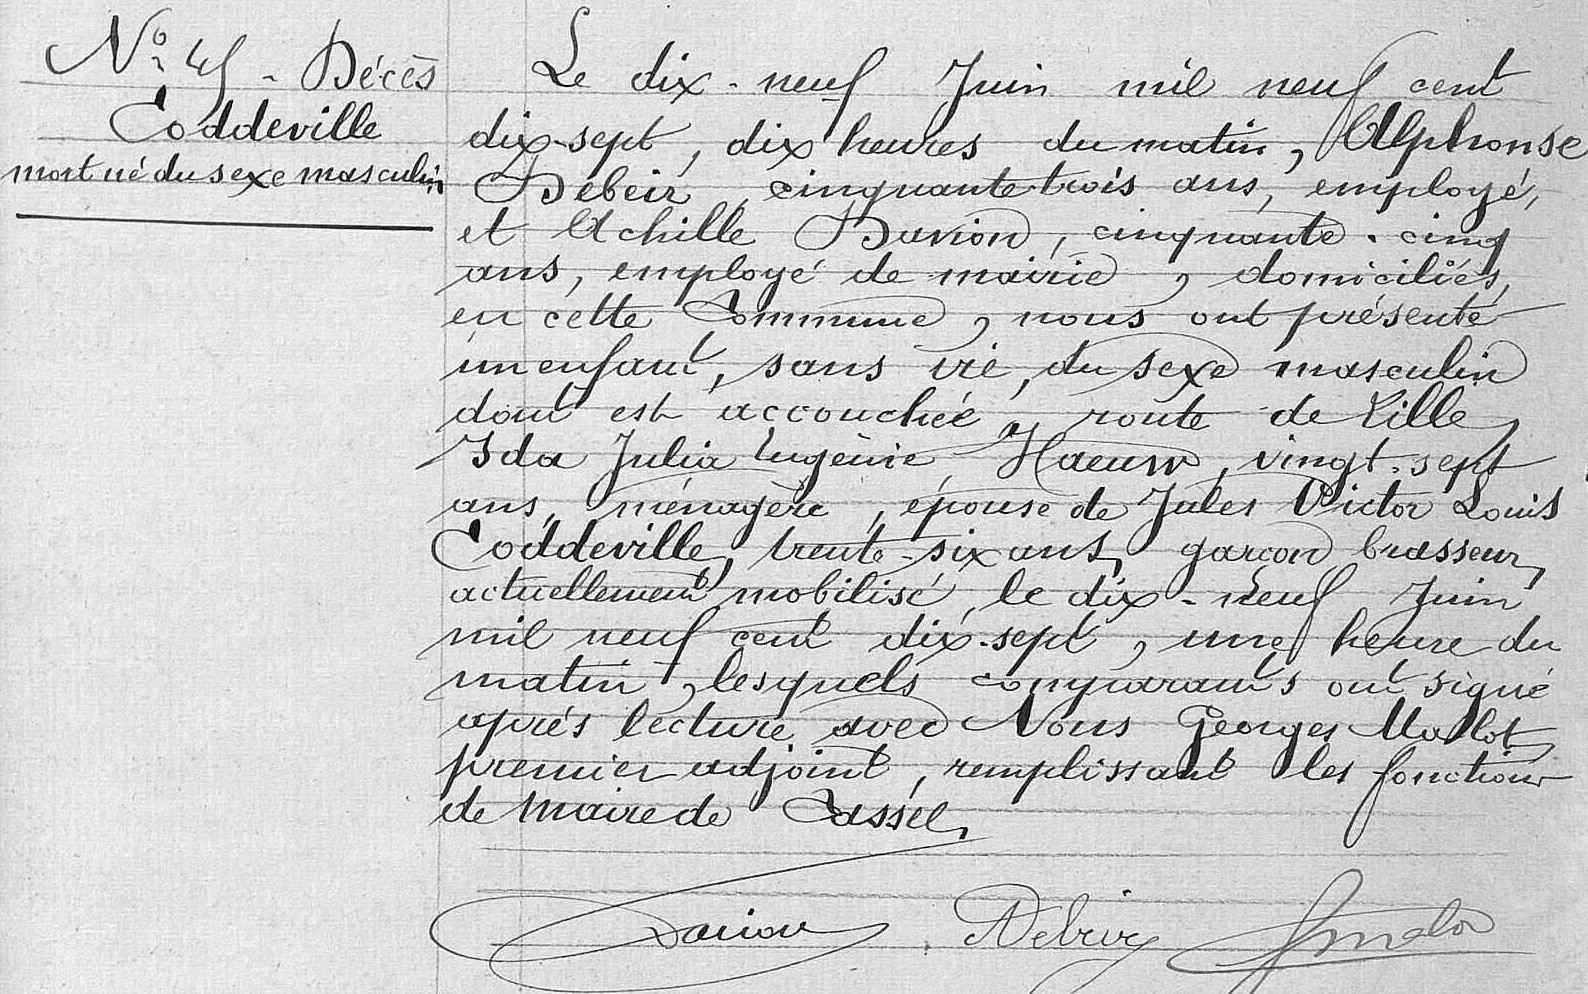 N° 45 - Décès
Coddeville
mort né du sexe masculin
Le dix-neuf Juin mil neuf cent
dix-sept, dix heures du matin, Alphonse
Debeir, cinquante-trois ans, employé,
et Achille Darion, cinquante-cinq
ans, employé de mairie, domiciliés,
en cette Commune, nous ont présenté
un enfant, sans vie, du sexe masculin
dont est accouchée, route de Lille,
Ida Julia Eugénie Haeuw, vingt-sept
ans, ménagère, épouse de Jules Victor Louis
Coddeville, trente-six ans, garçon brasseur,
actuellement mobilisé, le dix-neuf Juin
mil neuf cent dix-sept, une heure du
matin, lesquels comparants ont signé
après lecture avec Nous Georges Mallot,
premier adjoint, remplissant les fonctions
de Maire de Cassel.
Darion